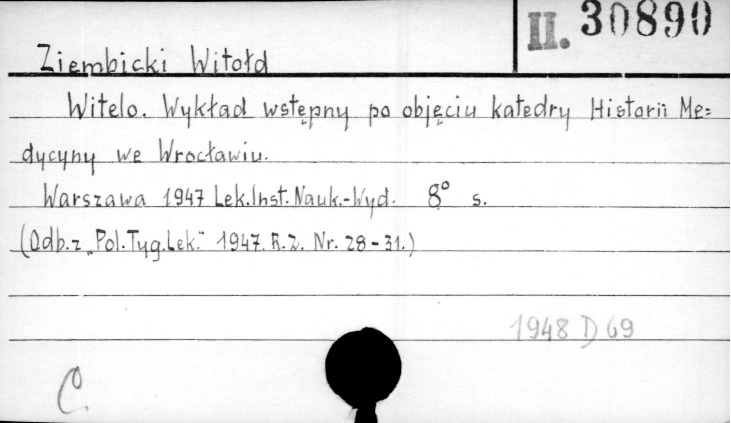 II. 30890
Ziembicki Witołd
Witelo. Wykład wstępny po objęciu katedry Historii Me=
dycyny we Wrocławiu.
Warszawa 1947 Lek.Inst.Nauk.-Wyd. 8° s.
(Odb.z „Pol.Tyg.Lek." 1947. R.2. Nr. 28-31.)
1948 D 69
C